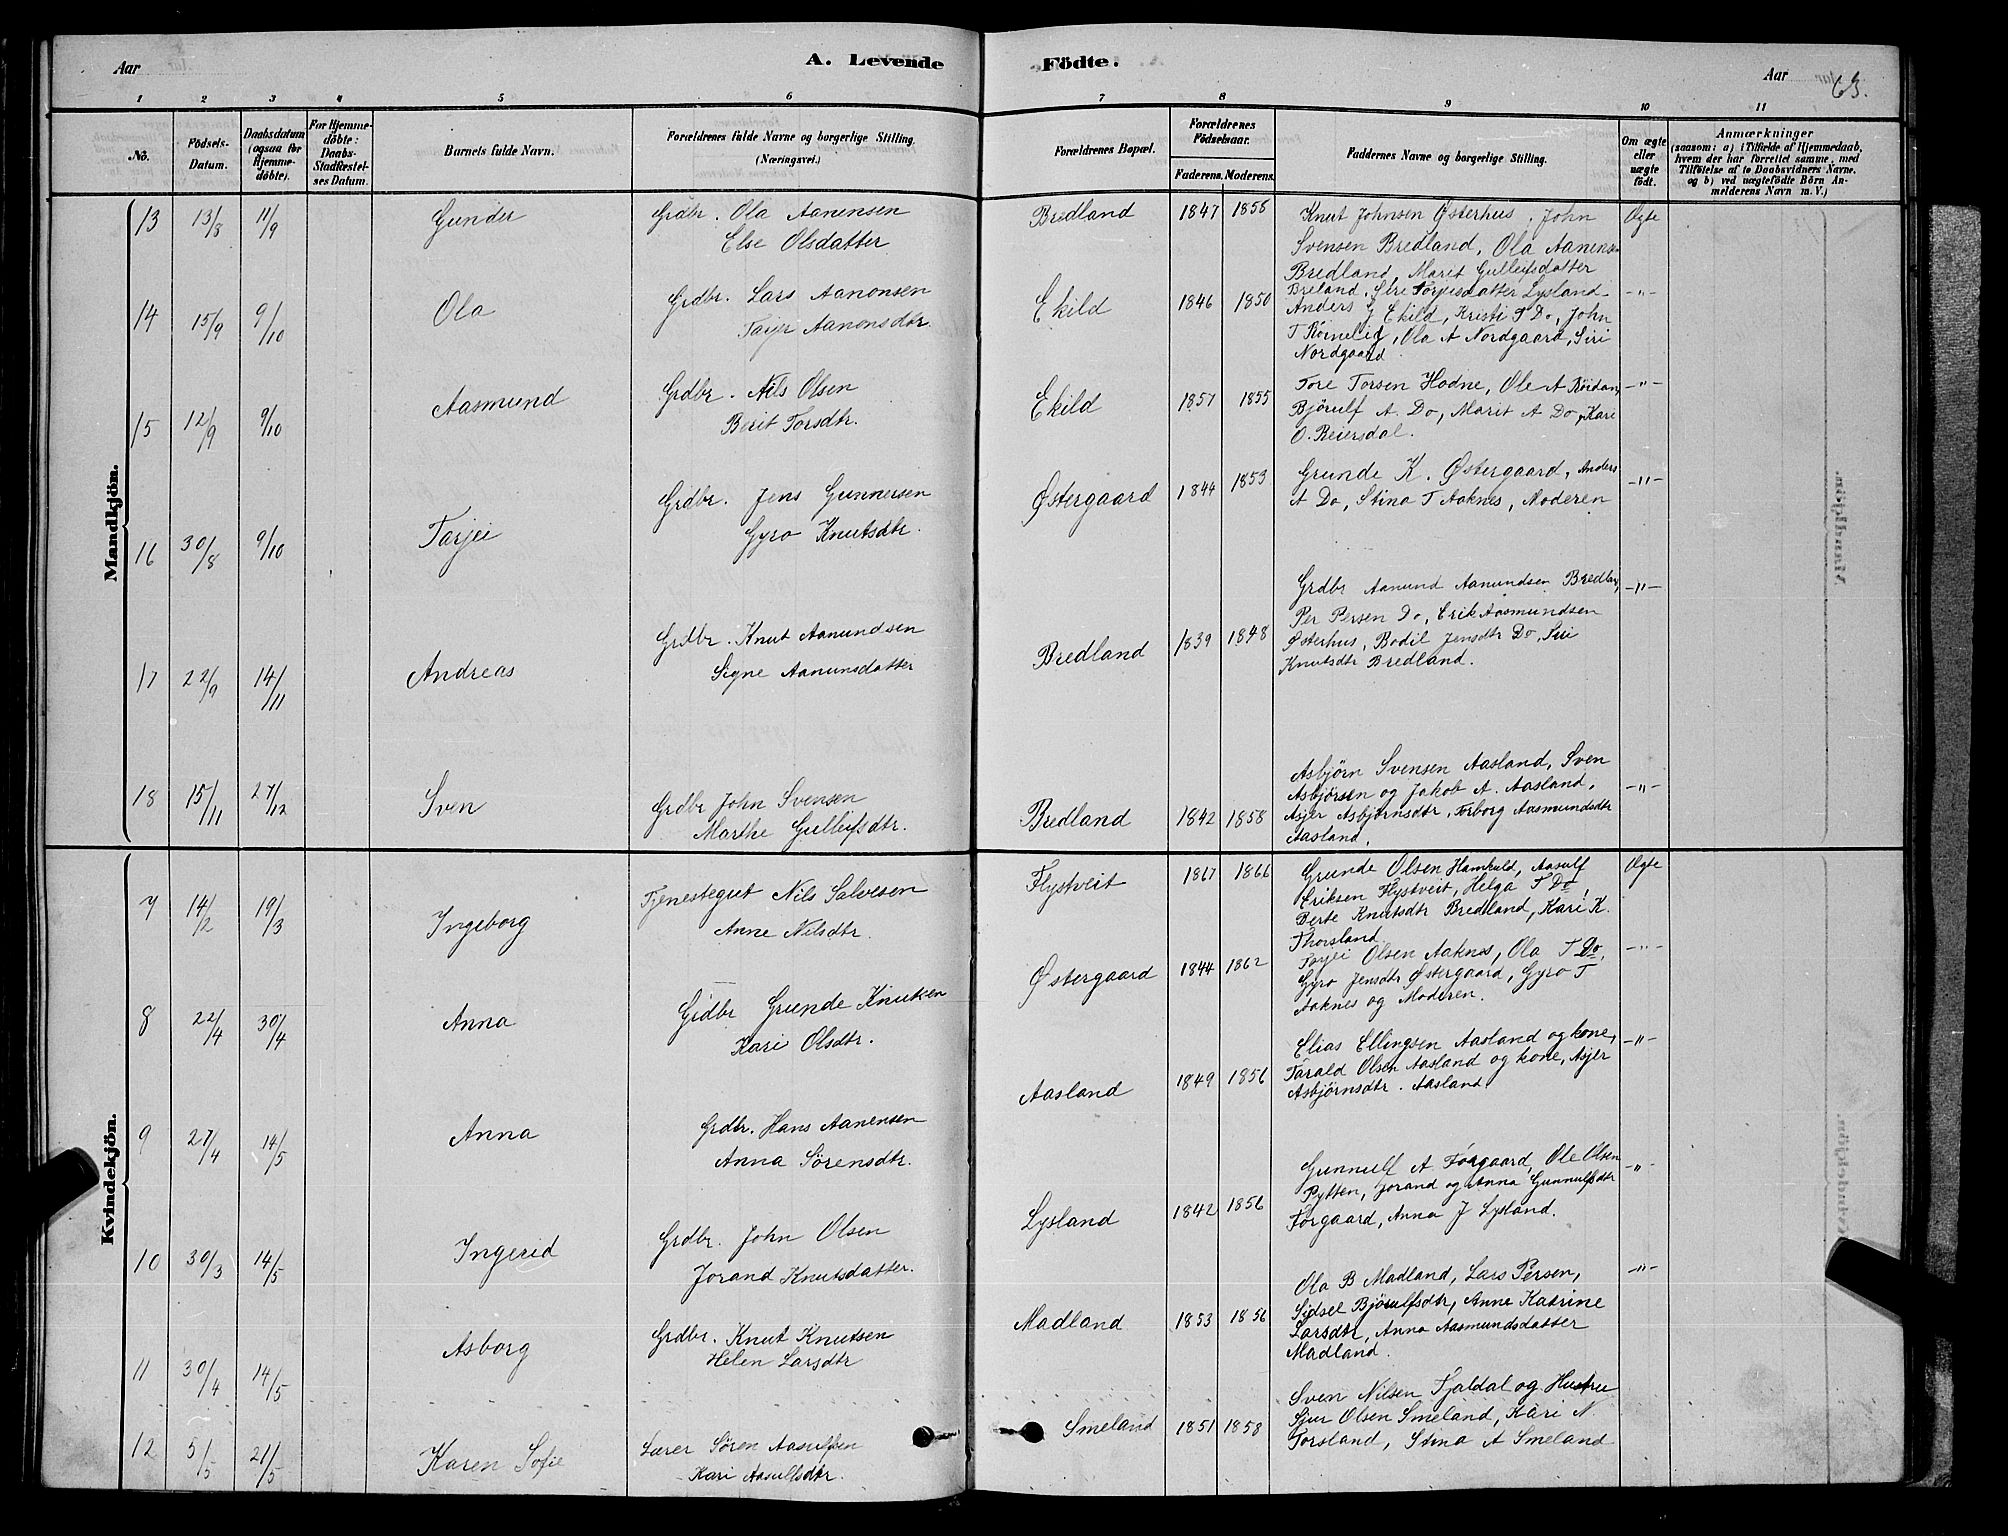 Aar
A. Levende
Födte.
Aar
63.
1 2 3 4 5 6 7 8 9 10 11
No.
Födsels-
Datum.
Daabsdatum
(ogsaa for
Hjemme-
döbte).
For Hjemme-
döbte:
Daabs-
Stadfæstel-
ses Datum.
Barnets fulde Navn.
Forældrenes fulde Navne og borgerlige Stilling.
(Næringsvei.)
Forældrenes Bopæl.
Forældrenes
Födselsaar.
Faderens. Moderens.
Faddernes Navne og borgerlige Stilling.
Om ægte
eller
uægte
født.
Anmærkninger
(saasom: a) i Tilfælde af Hjemmedaab,
hvem der har forrettet samme, med
Tilföielse af to Daabsvidners Navne,
og b) ved uægtefödte Börn An-
melderens Navn m. V.)
Mandkjön.
13 13/8 11/9 Gunder Grdbr. Ola Aanensen
Else Olsdatter
Bredland 1847 1856 Knut Johnsen Østerhus, John
Svensen Bredland, Ola Aanensen
Bredland, Marit Gulleifsdatter
Breland, Siri Torjusdatter Lysland
Ægte
14 15/9 9/10 Ola Grdbr. Lars Aanonsen
Taijer Aanonsdtr.
Ekild 1846 1850 Anders G Ekild, Kristi T Do, John
T Römelid, Ola A Nordgaard, Siri
Nordgaard.
-"-
15 12/9 9/10 Aasmund Grdbr. Nils Olsen
Berit Torsdtr.
Ekild 1857 1855 Tore Torsen Hodne, Ole A
Björulf A. Do, Marit A Do, Kari
O. Reiersdal.
-"-
16 30/8 9/10 Tarjei Grdbr. Jens Gunnersen
Gyro Knutsdtr.
Østergaard 1844 1853 Grunde K. Østergaard, Anders
A Do, Stina T Aaknes, Moderen
-"-
17 22/9 14/11 Andreas Grdbr. Knut Aanundsen
Signe Aanunsdatter
Bredland 1839 1848 Grdbr Aanund Aanundsen Bredland,
Per Persen Do, Erik Aasmundsen
Østerhus, Bodil Jensdtr Do, Siri
Knutsdtr Bredland.
-"-
18 15/11 27/12 Sven Grdbr John Svensen
Marthe Gulleifsdtr.
Bredland 1842 1858 Asbjörn Svensen Aasland, Sven
Asbjörsen og Jakob A. Aasland,
Asjer Asbjörnsdtr, Torborg Aasmundsdtr
Aasland.
-"-
Kvindekjön.
7 14/2 19/3 Ingeborg Tjenestegut Nils Salvesen
Anne Nilsdtr.
Flystveit 1867 1866 Grunde Olsen Hamkuld, Aasulf
Eriksen Flystveit, Helga T Do,
Berte Knutsdtr Bredland, Kari K.
Thorsland.
Ægte
8 22/4 30/4 Anna Grdbr Grunde Knutsen
Kari Olsdtr.
Østergaard 1844 1862 Tarjei Olsen Aaknes, Ola T Do,
Gyro Jensdtr Østergaard, Gyro T
Aaknes og Moderen.
-"-
9 27/4 14/5 Anna Grdbr. Hans Aanensen
Anna Sörensdtr.
Aasland 1849 1856 Elias Ellingsen Aasland og kone,
Tarald Olsen Aasland og kone, Asjer
Asbjörnsdtr. Aasland
-"-
10 30/3 14/5 Ingerid Grdbr. John Olsen
Jorand Knutsdatter.
Lysland 1842 1856 Gunnulf A Forgaard, Ole Olsen
Pytten, Jorand og Anna Gunnulfsdtr
Forgaard, Anna J Lysland.
-"-
11 30/4 14/5 Asborg Grdbr. Knut Knutsen
Helen Larsdtr
Madland 1853 1856 Ola B Madland, Lars Persen,
Sidsel Björulfsdtr, Anne Katrine
Larsdtr, Anna Aasmundsdatter
Madland.
-"-
12 5/5 21/5 Karen Sofie Lærer Sören Aasulfsen
Kari Aasulfsdtr.
Smeland 1851 1858 Sven Nilsen Tjaldal og Hustru
Sjur Olsen Smeland, Kari N.
Torsland, Stina A Smeland